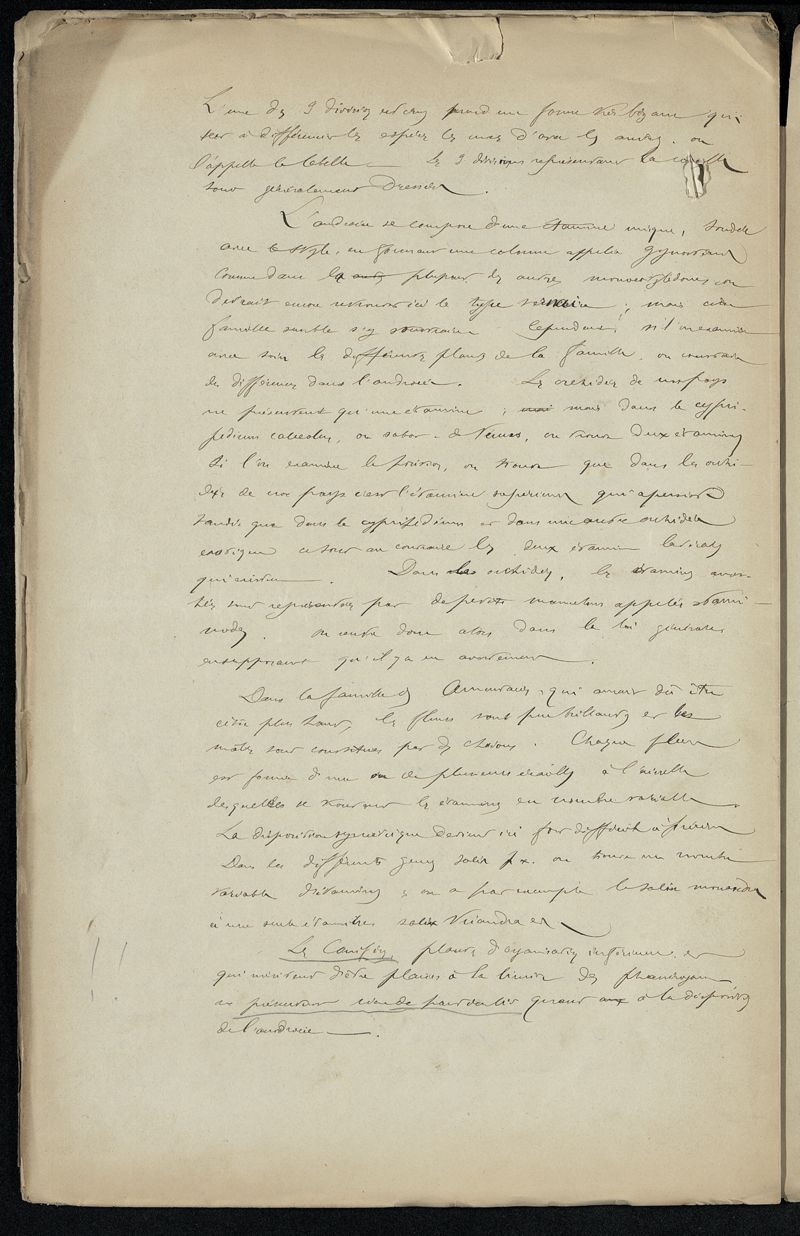 L'une des 3 divisions prend une forme très bizarre qui
sert à différencier les espèces les unes d'avec les autres, on
l'appelle le labelle — les 3 divisions représentant la corolle
sont généralement Dressées.
L'androcée se compose d'une étamine unique, soudée
avec le style, en formant une colonne appelée
Comme dans plusieurs des autres monocotylédones on
devrait encore retrouver ici le type ternaire, mais cette
famille semble s'y soustraire Cependant si l'on examine
avec soin les différentes plantes de la famille, on constate
des différences dans l'androcée. Les orchidées de nos pays
ne présentent qu'une étamine ; mais dans le cypri-
pedium calceolus, ou sabot de Venus, on trouve deux étamines
Si l'on examine la position, on trouve que dans les orchi-
dées de nos pays c'est l'étamine supérieure qui a persisté
tandis que dans le cypripedium et dans une autre orchidée
exotique ce sont au contraire les deux étamines latérales
qui existent. Dans les orchidées, les étamines avor-
tées sont représentées par de petits mamelons appelés stami-
nodes. on rentre donc alors dans la loi générale
en supposant qu'il y a eu avortement.
Dans la famille des Amentacées, qui aurait dû être
citée plus haut, les fleurs sont peu brillantes et les
mâles sont constitués par des chatons. Chaque fleur
est formée d'une ou de plusieurs écailles à l'aisselle
desquelles se trouvent les étamines en nombre variable.
La disposition symétrique devient ici fort difficile à préciser
Dans les différents genres salix p.x. on trouve un nombre
variable d'étamines ; on a par exemple le salix monandra
à une seule étamine, salix triandra etc
Les Conifères, plantes d'organisation inférieure et
qui méritent d'être placées à la limite des phanérogames
ne présentent rien de particulier quant à la disposition
de l'androcée —.